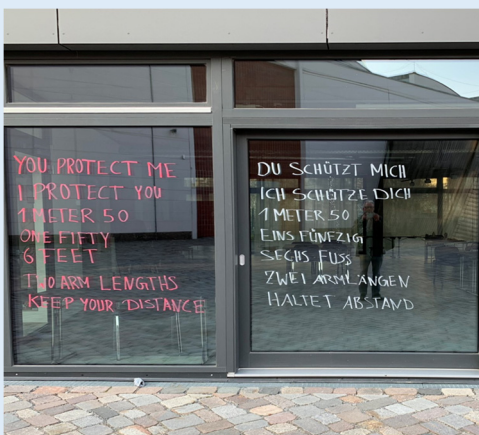 YOU PROTECT ME
I PROTECT YOU
1 METER 50
ONE FIFTY
6 FEET
TWO ARM LENGTHS
KEEP YOUR DISTANCE
DU SCHÜTZT MICH
ICH SCHÜTZE DICH
1 METER 50
EINS FÜNFZIG
SECHS FUSS
ZWEI ARMLÄNGEN
HALTET ABSTAND